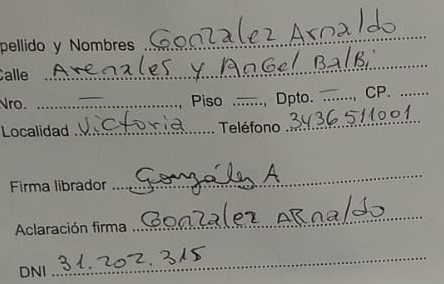 pellido y Nombres Gonzalez Arnaldo
Calle Arenales y AnGel BalBi
Nro. —, Piso —, Dpto. —, CP. ......
Localidad Victoria Teléfono 3436511001
Firma librador González A
Aclaración firma Gonzalez ARnaldo
DNI 31.202.315